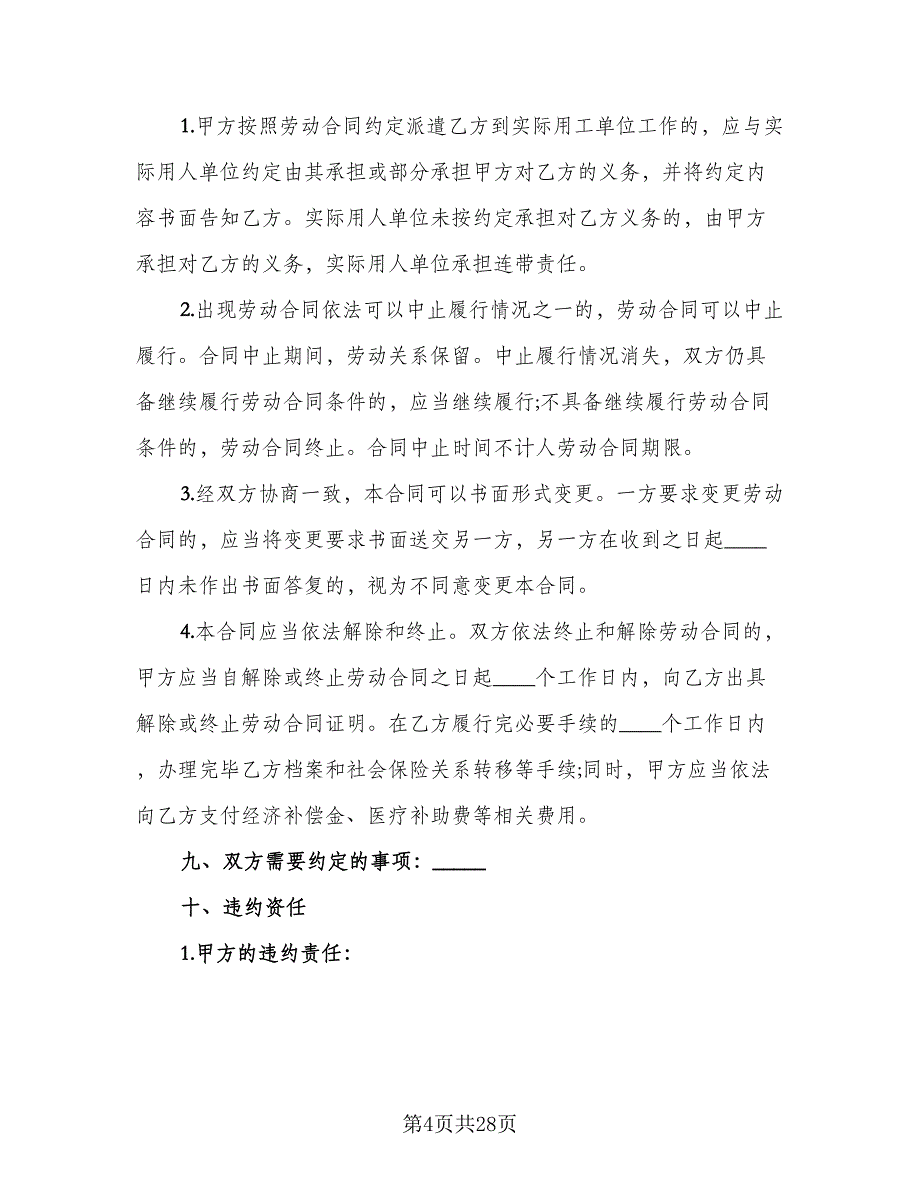 1.甲方按照劳动合同约定派遣乙方到实际用工单位工作的，应与实
际用人单位约定由其承担或部分承担甲方对乙方的义务，并将约定内
容书面告知乙方。实际用人单位未按约定承担对乙方义务的，由甲方
承担对乙方的义务，实际用人单位承担连带责任。
2.出现劳动合同依法可以中止履行情况之一的，劳动合同可以中止
履行。合同中止期间，劳动关系保留。中止履行情况消失，双方仍具
备继续履行劳动合同条件的，应当继续履行;不具备继续履行劳动合同
条件的，劳动合同终止。合同中止时间不计人劳动合同期限。
3.经双方协商一致，本合同可以书面形式变更。一方要求变更劳动
合同的，应当将变更要求书面送交另一方，另一方在收到之日起____
日内未作出书面答复的，视为不同意变更本合同。
4.本合同应当依法解除和终止。双方依法终止和解除劳动合同的，
甲方应当自解除或终止劳动合同之日起____个工作日内，向乙方出具
解除或终止劳动合同证明。在乙方履行完必要手续的____个工作日内
，办理完毕乙方档案和社会保险关系转移等手续;同时，甲方应当依法
向乙方支付经济补偿金、医疗补助费等相关费用。
九、双方需要约定的事项：_____
十、违约资任
1.甲方的违约责任：
第4页共28页